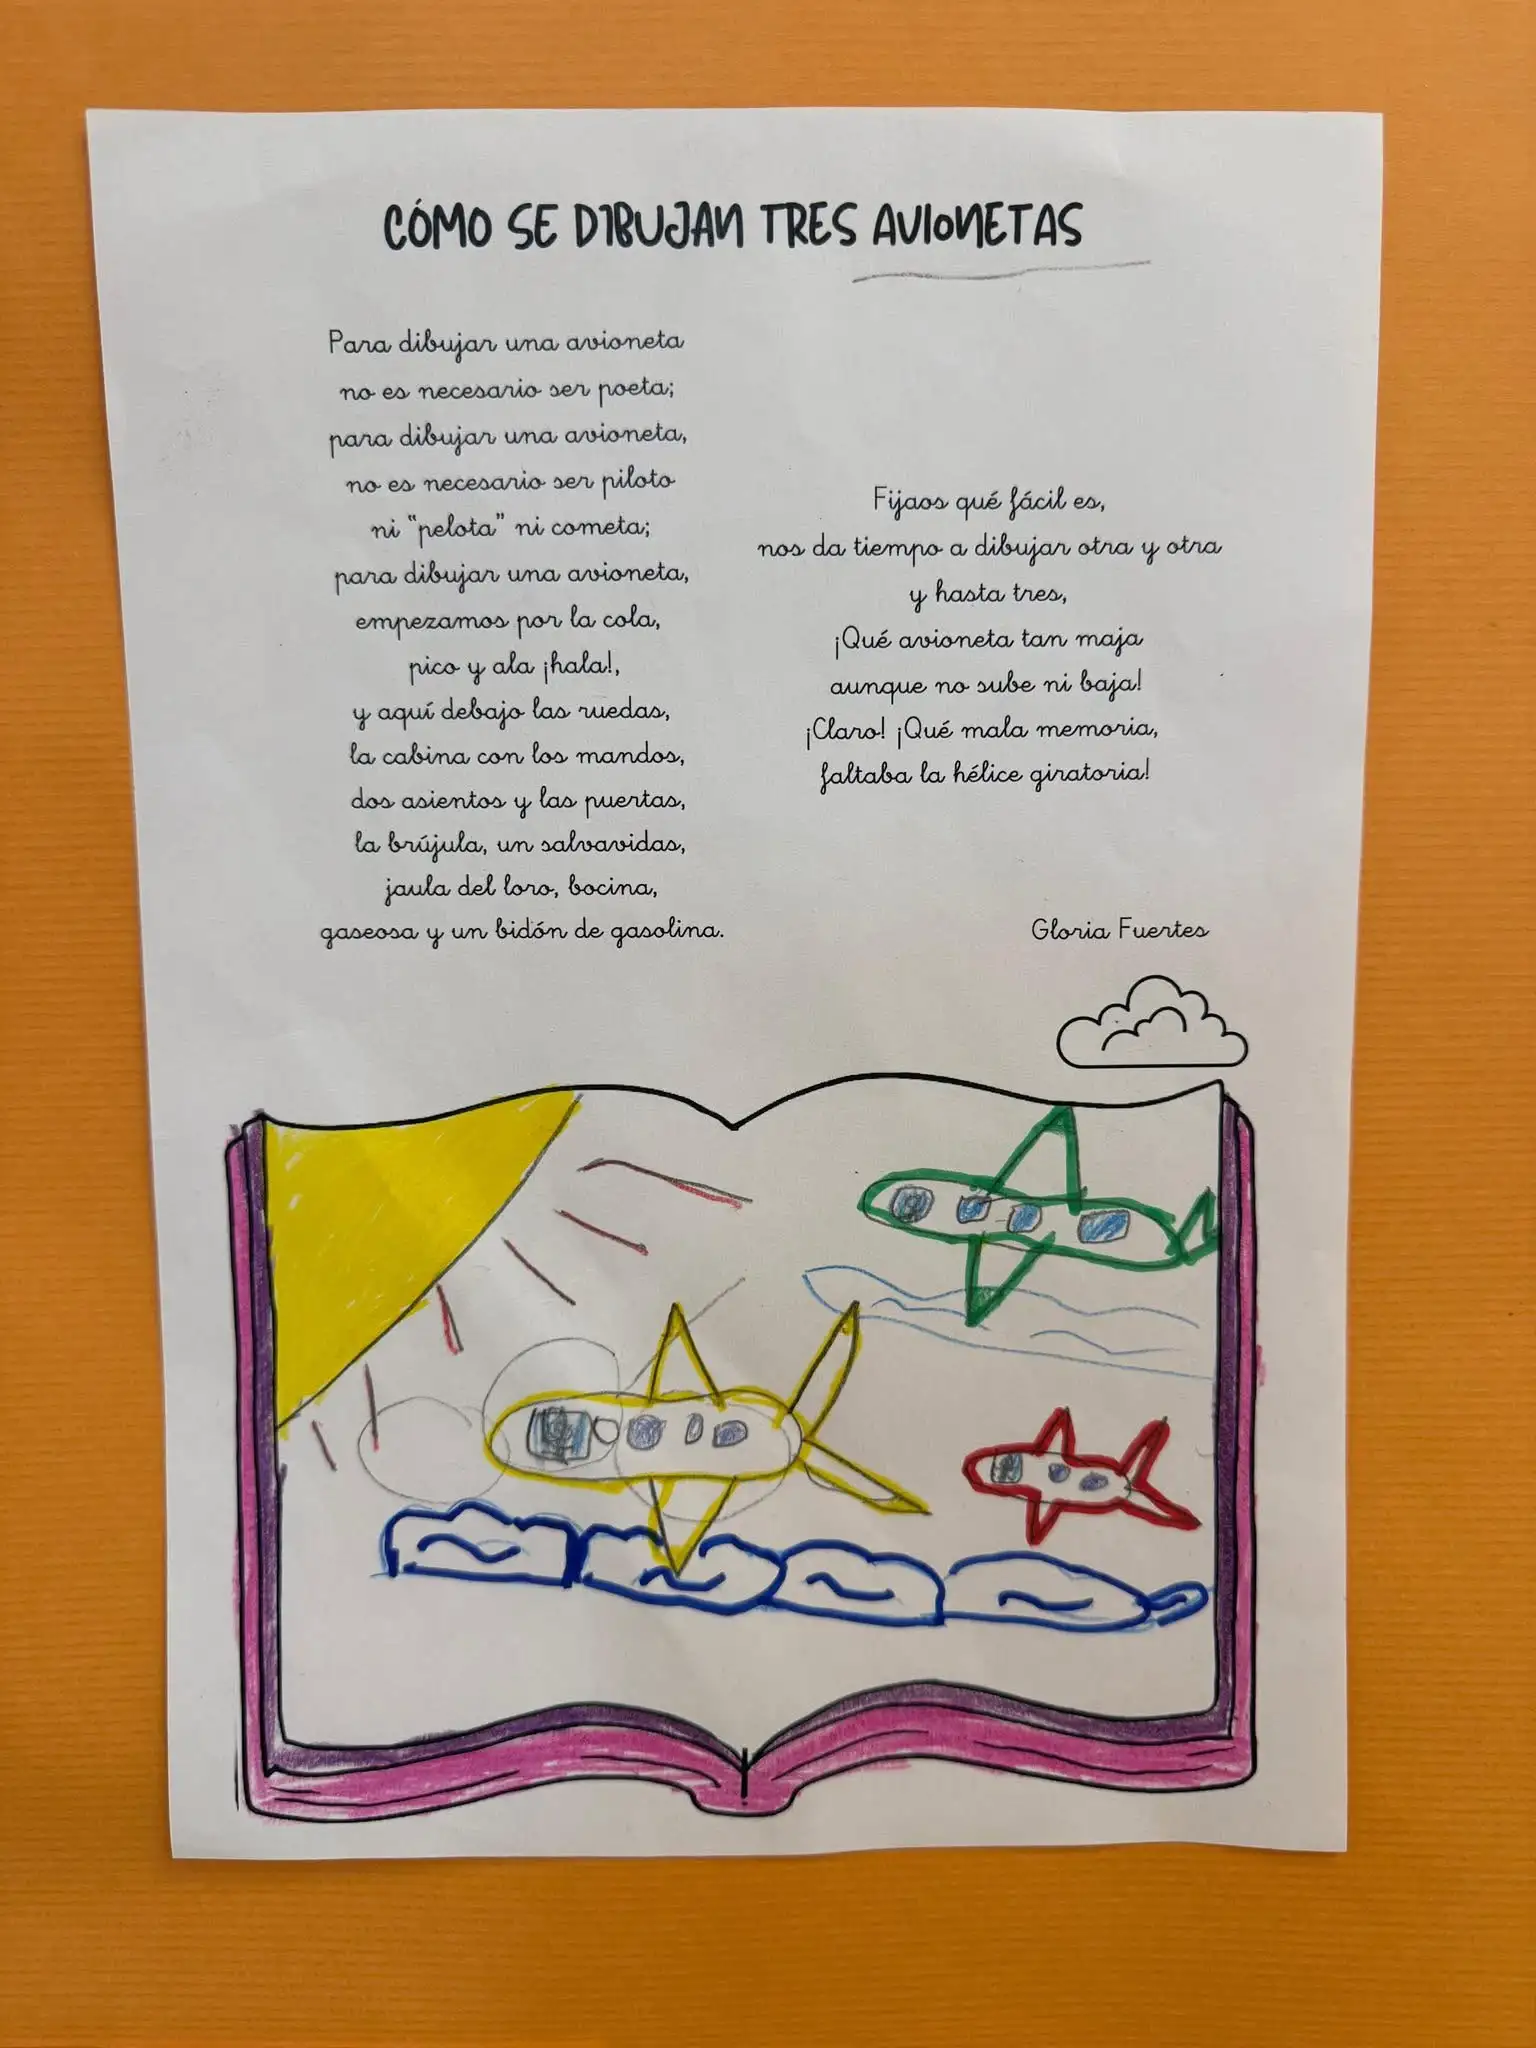 CÓMO SE DIBUJAN TRES AVIONETAS
Para dibujar una avioneta
no es necesario ser poeta;
para dibujar una avioneta,
no es necesario ser piloto
ni "pelota" ni cometa;
para dibujar una avioneta,
empezamos por la cola,
pico y ala ¡hala!,
y aquí debajo las ruedas,
la cabina con los mandos,
dos asientos y las puertas,
la brújula, un salvavidas,
jaula del loro, bocina,
gaseosa y un bidón de gasolina.
Fijaos qué fácil es,
nos da tiempo a dibujar otra y otra
y hasta tres,
¡Qué avioneta tan maja
aunque no sube ni baja!
¡Claro! ¡Qué mala memoria,
faltaba la hélice giratoria!
Gloria Fuertes